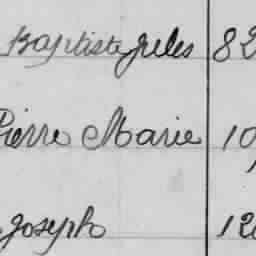 Baptiste Jules 82
Pierre Marie 10
Joseph 12